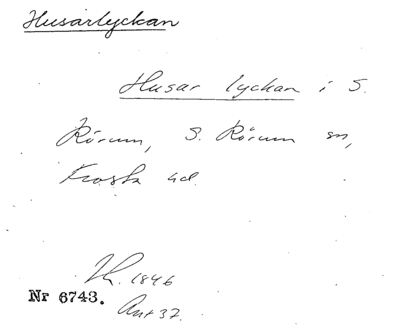 Husarlyckan
Husar lyckan i S.
Rörum, S. Rörum sn,
Frosta hd.
1846
Nr 6743.
Ant 37.